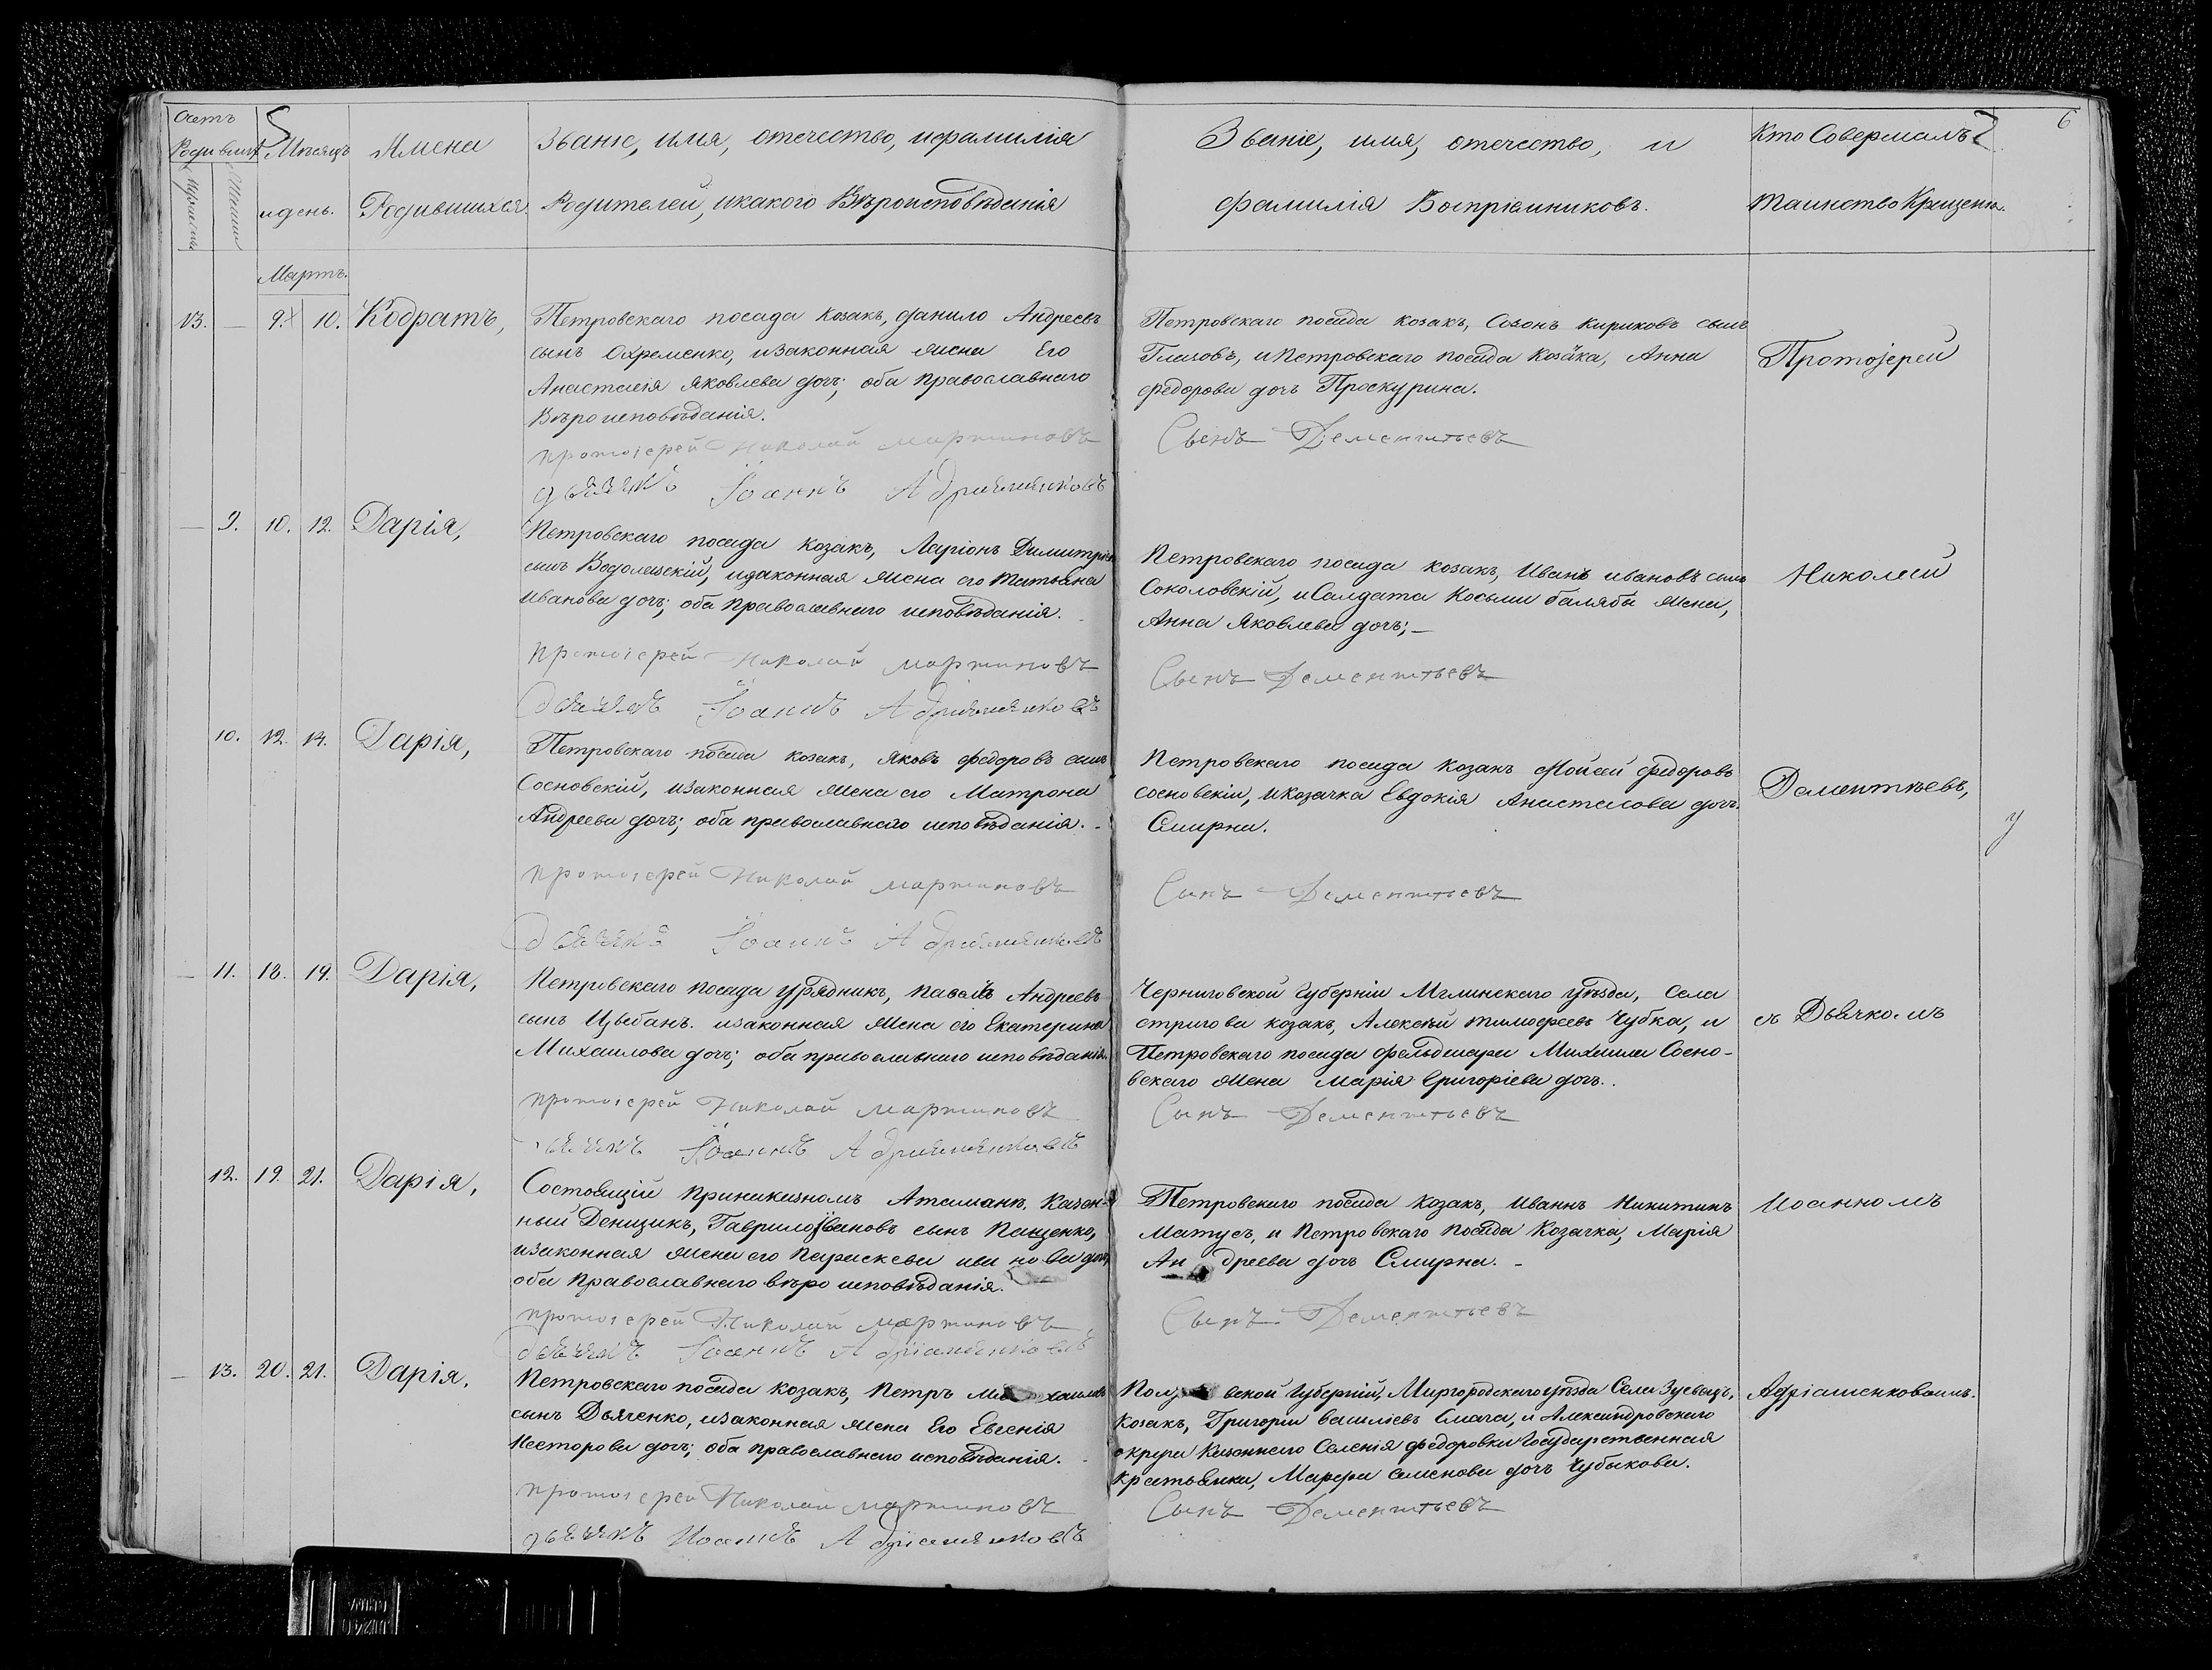 Счетъ
Родившихся
Мужеска
Женска
Мѣсяцъ
и день.
Имена
Родившихся.
Званіе, имя, отечество, и фамилія
Родителей, и какого Вѣроисповѣданія
Званіе, имя, отечество, и
фамилія Воспріемниковъ.
Кто Совершалъ
таинство Крещенія.
6
Мартъ.
13. — 9. 10. Кодратъ,
Петровскаго посада козакъ, Данило Андреевъ
сынъ Охременко, и законная жена Его
Анастасія Яковлева дочь; оба православнаго
Вѣроисповѣданія.
протоіерей Николай Мартиновъ
дьячекъ Іоаннъ Адріяненковъ
Петровскаго посада козакъ, Созонъ Кириковъ сынъ
Глазовъ, и Петровскаго посада козачка, Анна
Федорова дочь Проскурина.
Сынъ Дементьевъ
Протоіерей
— 9. 10. 12. Дарія,
Петровскаго посада козакъ, Ларіонъ Димитріевъ
сынъ Водолазскій, и законная жена его Татьяна
Иванова дочь; оба православнаго исповѣданія.
протоіерей Николай Мартиновъ
дьячекъ Іоаннъ Адріяненковъ
Петровскаго посада козакъ, Иванъ Ивановъ сынъ
Соколовскій, и Салдата Косьми балябы жена,
Анна Яковлева дочь; —
Сынъ Дементьевъ
Николай
10. 12. 14. Дарія,
Петровскаго посада козакъ, Яковъ Федоровъ сынъ
Сосновскій, и законная жена его Матрона
Андреева дочь; оба православнаго исповѣданія. -
протоіерей Николай Мартиновъ
дьячекъ Іоаннъ Адріяненковъ
Петровскаго посада козакъ Мойсей Федоровъ
сосновскій, и козачка Евдокія Анастасова дочь
Смирна.
Сынъ Дементьевъ
Дементьевъ,
— 11. 18. 19. Дарія,
Петровскаго посада урядникъ, Павелъ Андреевъ
сынъ Цыбань. и законная жена его Екатерина
Михаилова дочь; оба православнаго исповѣданія.
протоіерей Николай Мартиновъ
дьячекъ Іоаннъ Адріяненковъ
Черниговской Губерніи Мглинскаго уѣзда, Села
стригова козакъ, Алексѣй тимофеевъ Чубка, и
Петровскаго посада фельдшера Михаила Сосно-
вскаго жена Марія Григоріева дочь..
Сынъ Дементьевъ
съ Дьячкомъ
12. 19. 21. Дарія,
Состоящій при наказномъ Атаманѣ, Казен-
ный Денщикъ, Гаврило Ивановъ сынъ Пащенко,
и законная жена его Параскева ивановa дочь,
оба Православнаго вѣроисповѣданія.
протоіерей Николай Мартиновъ
дьячекъ Іоаннъ Адріаненковъ
Петровскаго посада козакъ, Иваннъ Никитинъ
Матусъ, и Петровскаго посада Козачка, Марія
Андреева дочь Смирна. -
Сынъ Дементьевъ
Иоанномъ
— 13. 20. 21. Дарія,
Петровскаго посада козакъ, Петръ Михаиловъ
сынъ Дьяченко, и законная жена Его Евсенія
Несторова дочь; оба православнаго исповѣданія.
протоіерей Николай Мартиновъ
дьячекъ Иоаннъ Адріаненковъ
вской Губерніи, Миргородскаго уѣзда Села Зуевецъ,
козакъ, Григорій василіевъ Смага, и Александровскаго
округа Казеннаго Селенія Федоровки Государственная
крестьянка, Марфа Семенова дочь Чубыкова.
Сынъ Дементьевъ
Адріаненковымъ.